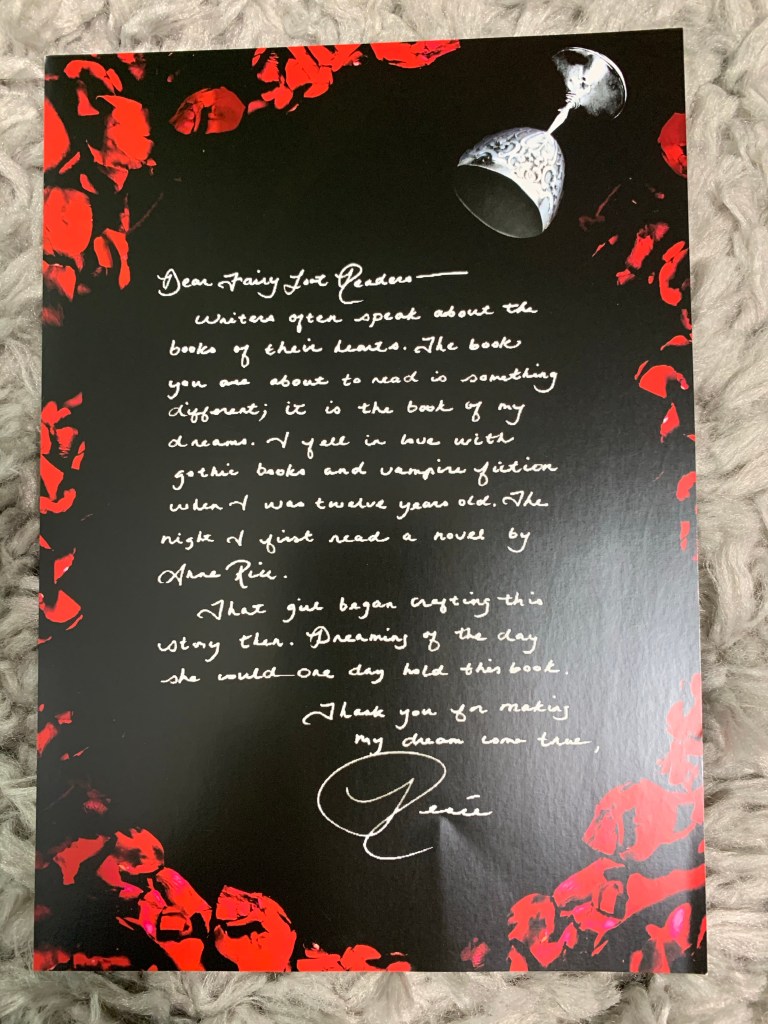 Dear Fairy Loot Readers—
Writers often speak about the
books of their hearts. The book
you are about to read is something
different; it is the book of my
dreams. I fell in love with
gothic books and vampire fiction
when I was twelve years old. The
night I first read a novel by
Anne Rice.
That girl began crafting this
story then. Dreaming of the day
she would one day hold this book.
Thank you for making
my dream come true,
Renée